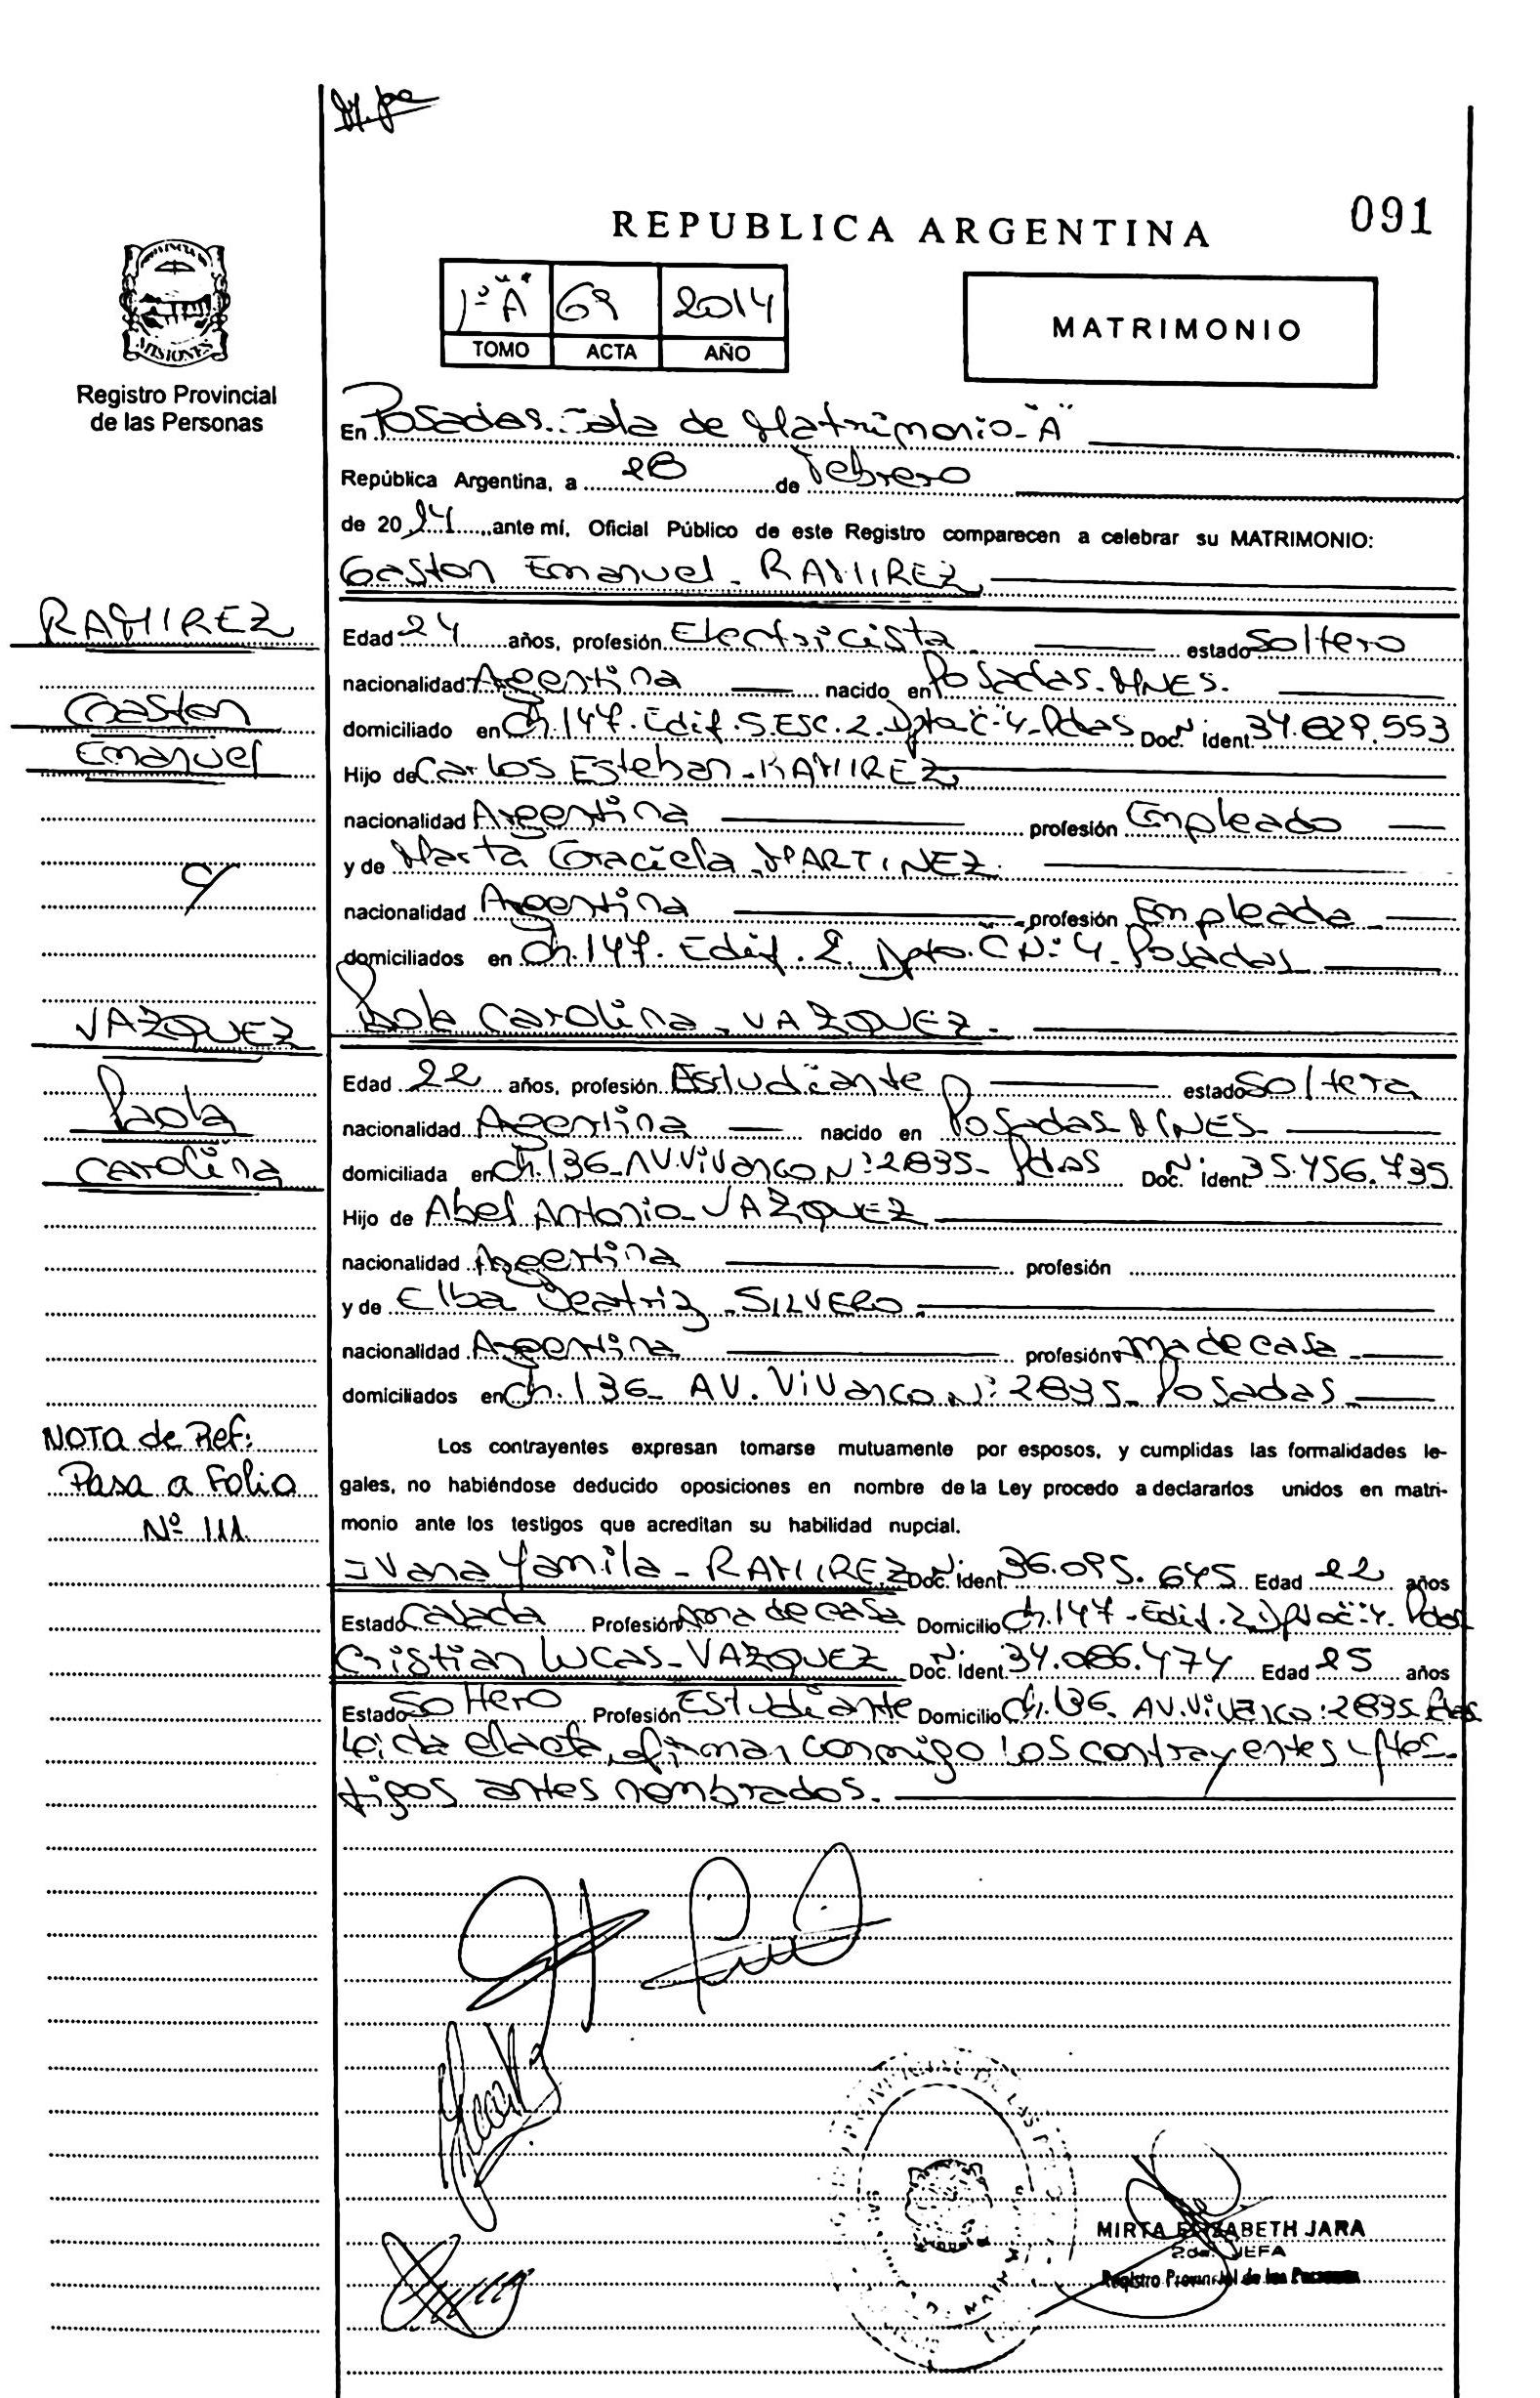 REPUBLICA ARGENTINA
091
1º "A" 69 2014
TOMO ACTA AÑO
MATRIMONIO
MISIONES
Registro Provincial
de las Personas
En Posadas. Sala de Matrimonio "A"
República Argentina, a 28 de Febrero
de 2014, ante mí, Oficial Público de este Registro comparecen a celebrar su MATRIMONIO:
Gaston Emanuel RAMIREZ
RAMIREZ
Gaston
Emanuel
y
VAZQUEZ
Paola
Carolina
Edad 24 años, profesión Electricista estado Soltero
nacionalidad Argentina nacido en Posadas. MNES.
domiciliado en Ch. 147. Edif. 5. ESC. 2. Dpto "C" 4 Pdas Doc. Nº Ident. 34.829.553
Hijo de Carlos Esteban RAMIREZ
nacionalidad Argentina profesión Empleado
y de Marta Graciela MARTINEZ.
nacionalidad Argentina profesión Empleada
domiciliados en Ch. 147. Edif. 2. Dpto. C Nº 4 Posadas
Paola Carolina VAZQUEZ.
Edad 22 años, profesión Estudiante estado Soltera
nacionalidad Argentina nacido en Posadas MNES
domiciliada en Ch. 136 AV. Vivanco Nº 2835 Pdas Doc. Nº Ident. 35.456.735
Hijo de Abel Antonio VAZQUEZ
nacionalidad Argentina profesión
y de Elba Beatriz SILVERO
nacionalidad Argentina profesión Ama de casa
domiciliados en Ch. 136 AV. Vivanco Nº 2835 Posadas
NOTA de Ref:
Pasa a Folio
Nº 111.
Los contrayentes expresan tomarse mutuamente por esposos, y cumplidas las formalidades le-
gales, no habiéndose deducido oposiciones en nombre de la Ley procedo a declararlos unidos en matri-
monio ante los testigos que acreditan su habilidad nupcial.
Ivana Yamila RAMIREZ Doc. Nº Ident. 36.095.645 Edad 22 años
Estado Casada Profesión Ama de casa Domicilio Ch. 147 Edif. 2 Dpto "C" 4. Pdas
Cristian Lucas VAZQUEZ Doc. Nº Ident. 34.086.474 Edad 25 años
Estado Soltero Profesión Estudiante Domicilio Ch. 136. AV. Vivanco 2835 Pdas
Leida el acta, firman conmigo los contrayentes y tes-
tigos antes nombrados.
MIRTA ELIZABETH JARA
2da. JEFA
Registro Provincial de las Personas